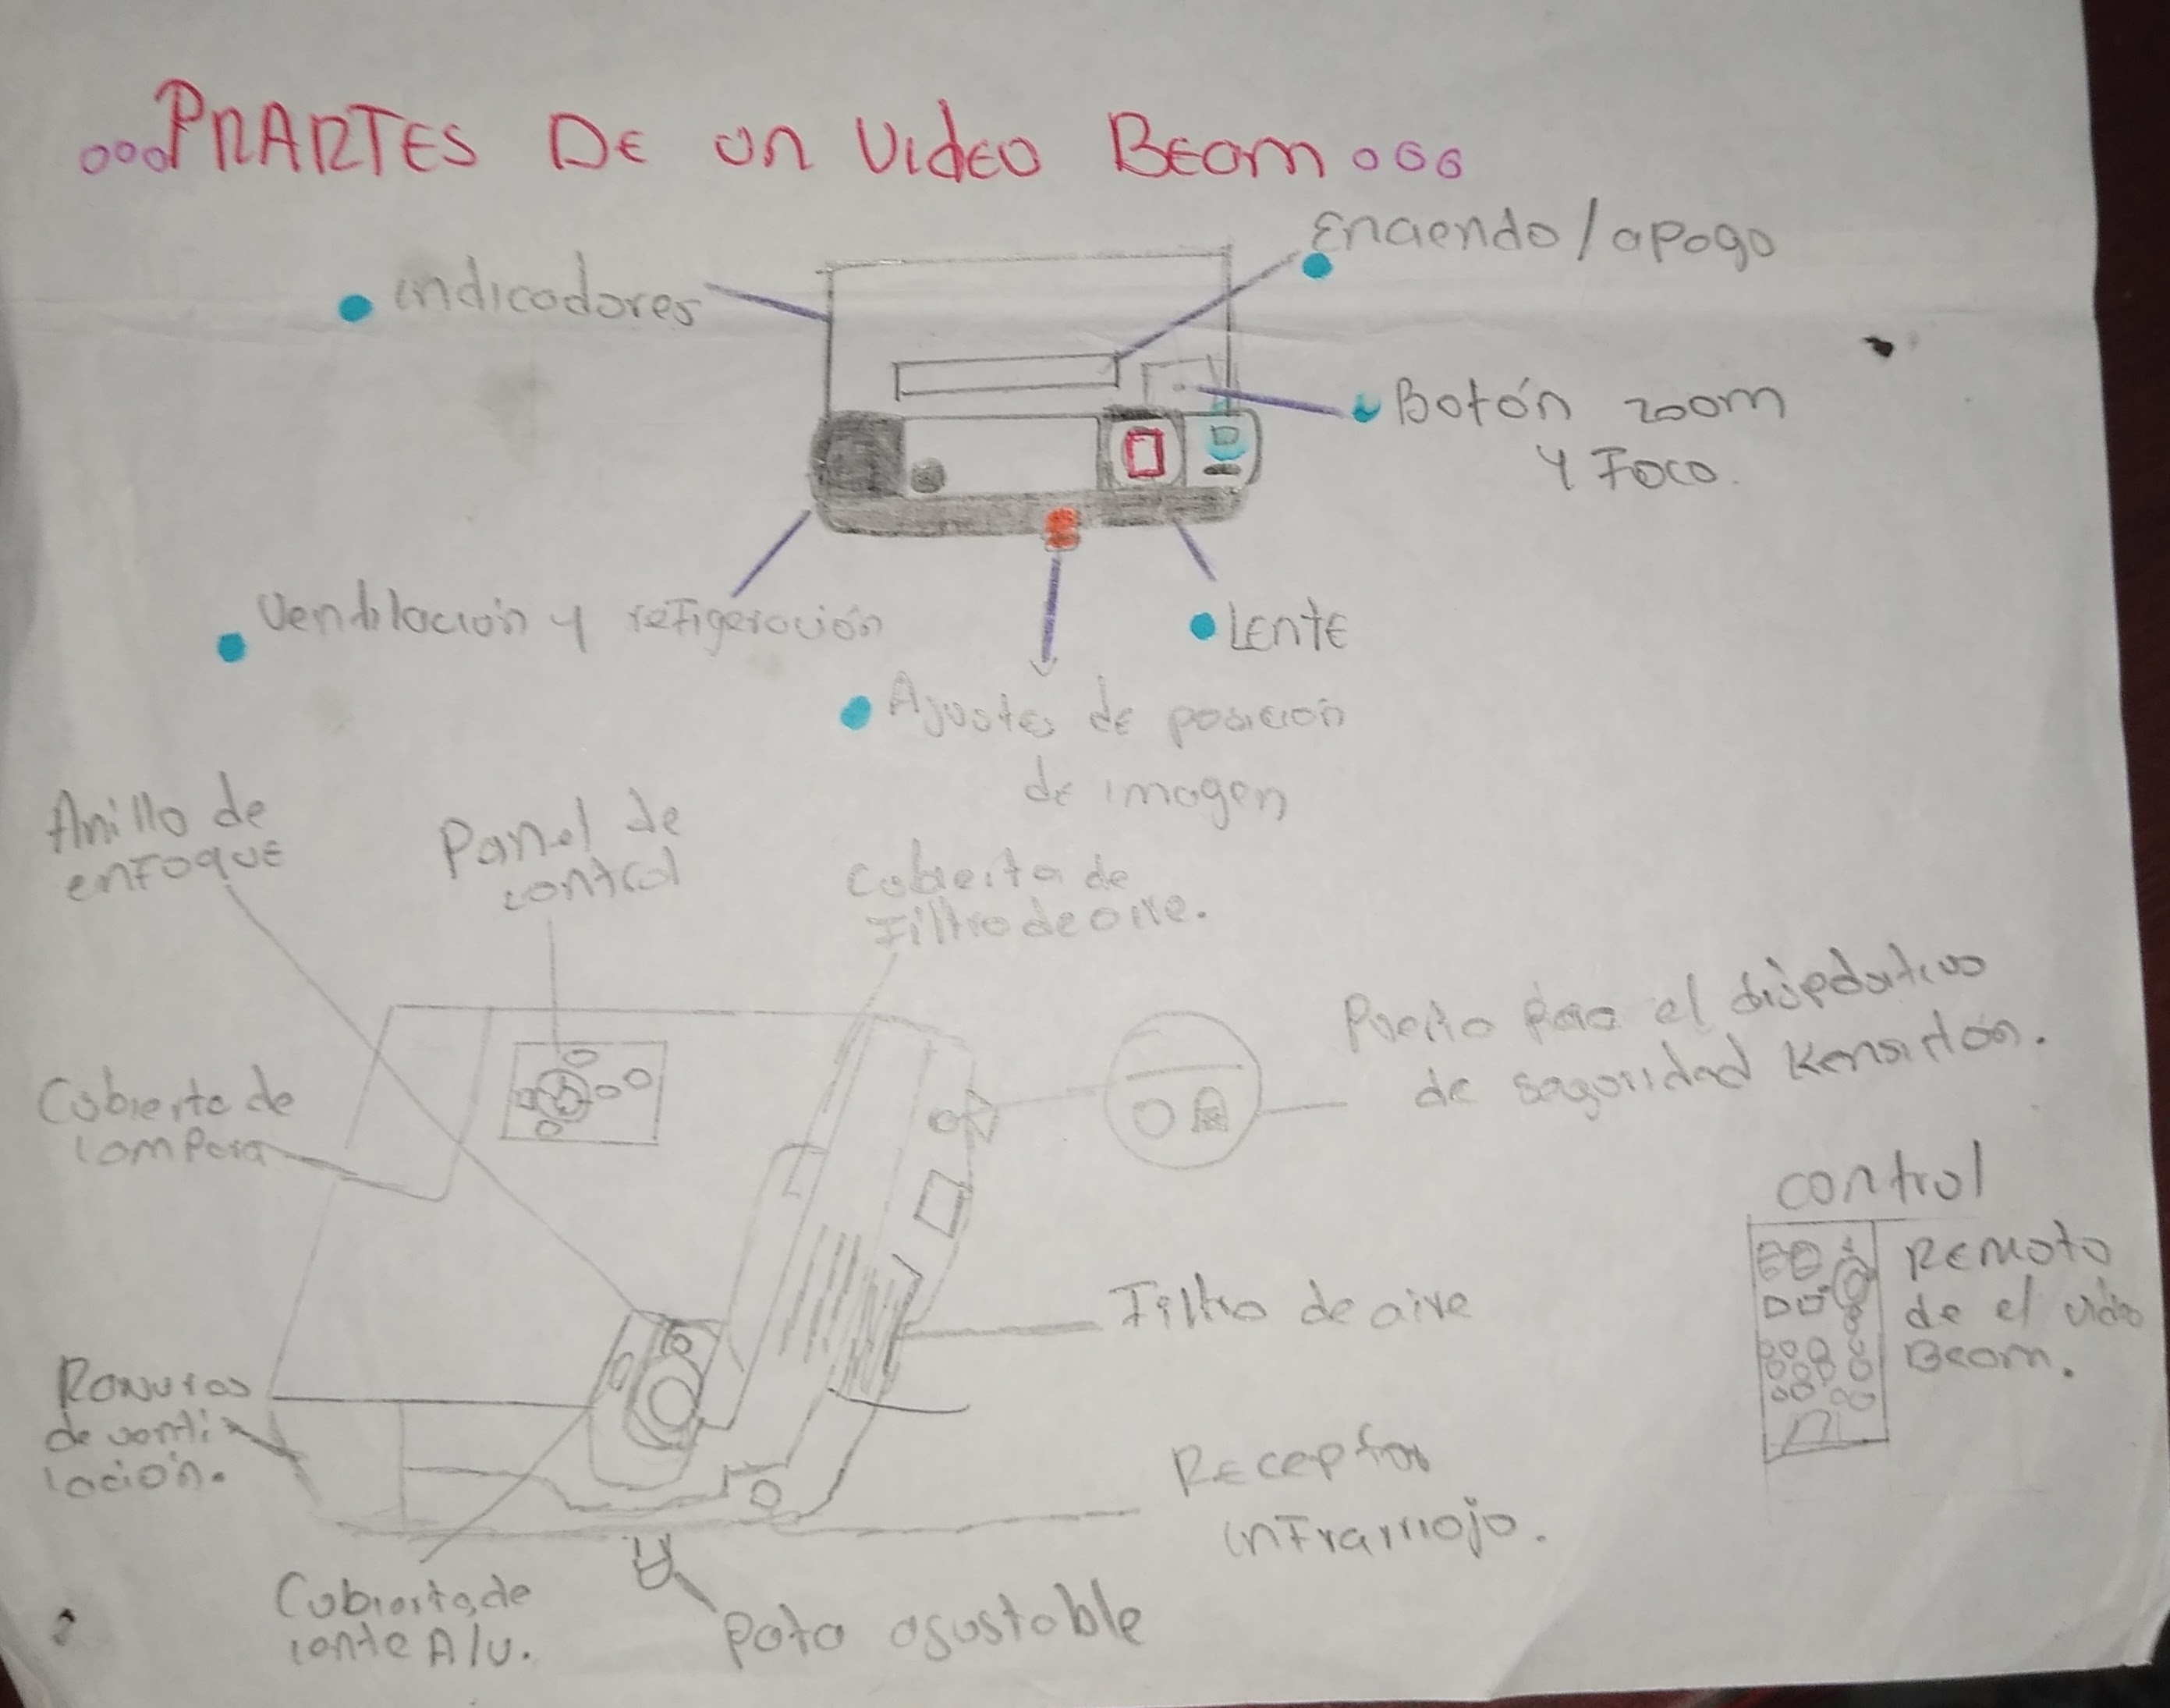 PRARTES DE un VIDEO BEam
Enciendo / apago
indicadores
Botón zoom
y Foco.
Ventilación y refigeración
Lente
Ajustes de posicion
de imagen
Anillo de
enFoque
Panel de
control
Cobierta de
Filtro de aire.
Puerto para el dispositivo
de seguridad Kensinton.
Cobierta de
lampara
control
REMOTO
de el video
Beam.
Filtro de aire
Ranuras
de venti
lación.
Receptor
inFrarrojo.
Cobierta de
lente A/V.
pata agustable